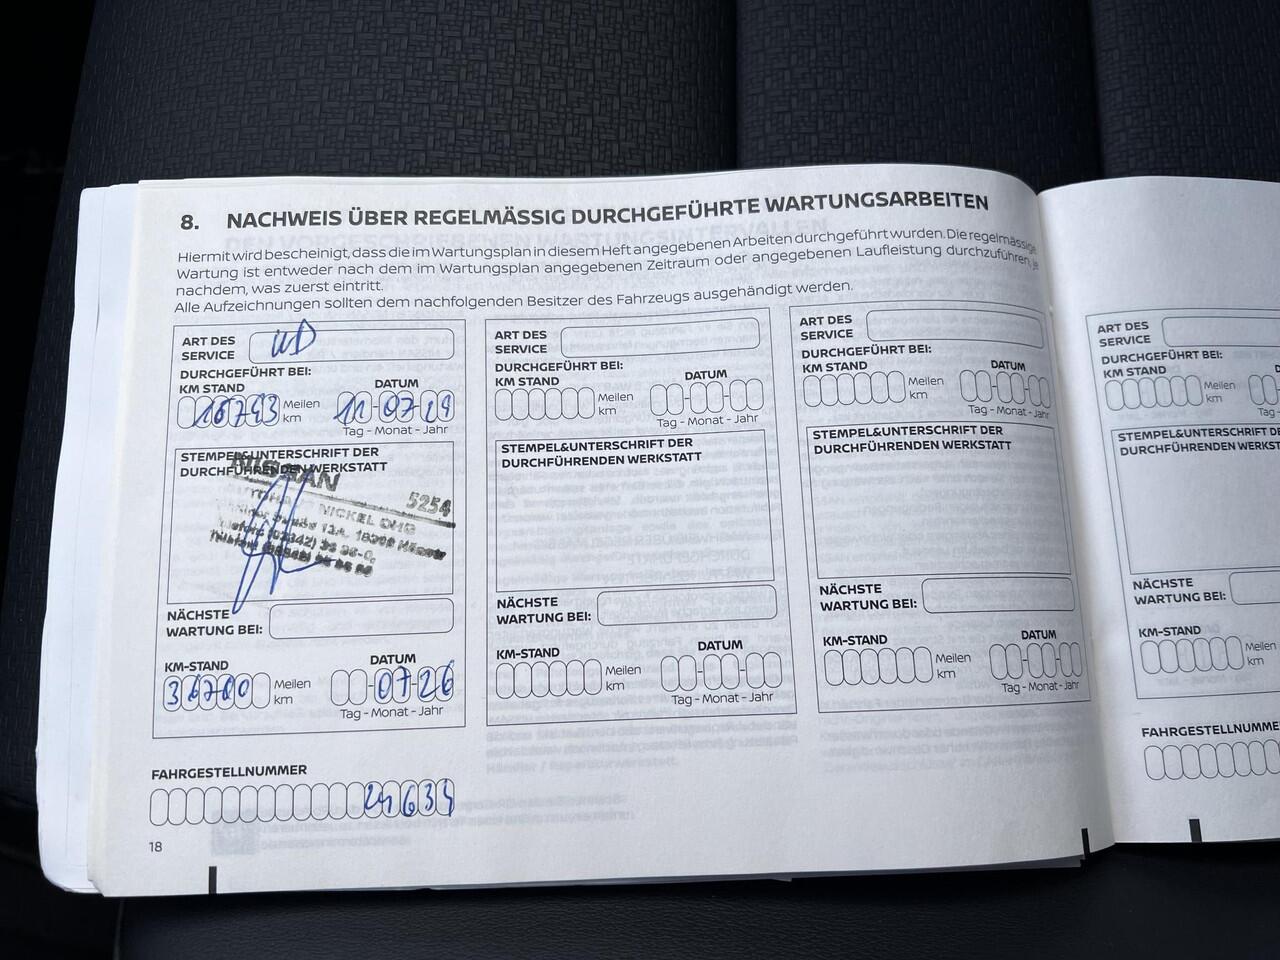 8. NACHWEIS ÜBER REGELMÄSSIG DURCHGEFÜHRTE WARTUNGSARBEITEN
Hiermit wird bescheinigt, dass die im Wartungsplan in diesem Heft angegebenen Arbeiten durchgeführt wurden. Die regelmässige
Wartung ist entweder nach dem im Wartungsplan angegebenen Zeitraum oder angegebenen Laufleistung durchzuführen, je
nachdem, was zuerst eintritt.
Alle Aufzeichnungen sollten dem nachfolgenden Besitzer des Fahrzeugs ausgehändigt werden.
ART DES
SERVICE
DURCHGEFÜHRT BEI:
KM STAND DATUM
Meilen
km
07
Tag - Monat - Jahr
STEMPEL&UNTERSCHRIFT DER
DURCHFÜHRENDEN WERKSTATT
5254
NICKEL OHG
NÄCHSTE
WARTUNG BEI:
KM-STAND DATUM
36700 Meilen
km
07-26
Tag - Monat - Jahr
ART DES
SERVICE
DURCHGEFÜHRT BEI:
KM STAND DATUM
Meilen
km
Tag - Monat - Jahr
STEMPEL&UNTERSCHRIFT DER
DURCHFÜHRENDEN WERKSTATT
NÄCHSTE
WARTUNG BEI:
KM-STAND DATUM
Meilen
km
Tag - Monat - Jahr
ART DES
SERVICE
DURCHGEFÜHRT BEI:
KM STAND DATUM
Meilen
km
Tag - Monat - Jahr
STEMPEL&UNTERSCHRIFT DER
DURCHFÜHRENDEN WERKSTATT
NÄCHSTE
WARTUNG BEI:
KM-STAND DATUM
Meilen
km
Tag - Monat - Jahr
FAHRGESTELLNUMMER
18
ART DES
SERVICE
DURCHGEFÜHRT BEI:
KM STAND
Meilen
km
Tag -
STEMPEL&UNTERSCHRIFT DE
DURCHFÜHRENDEN WERKSTA
NÄCHSTE
WARTUNG BEI:
KM-STAND
Meilen
km
FAHRGESTELLNUMME